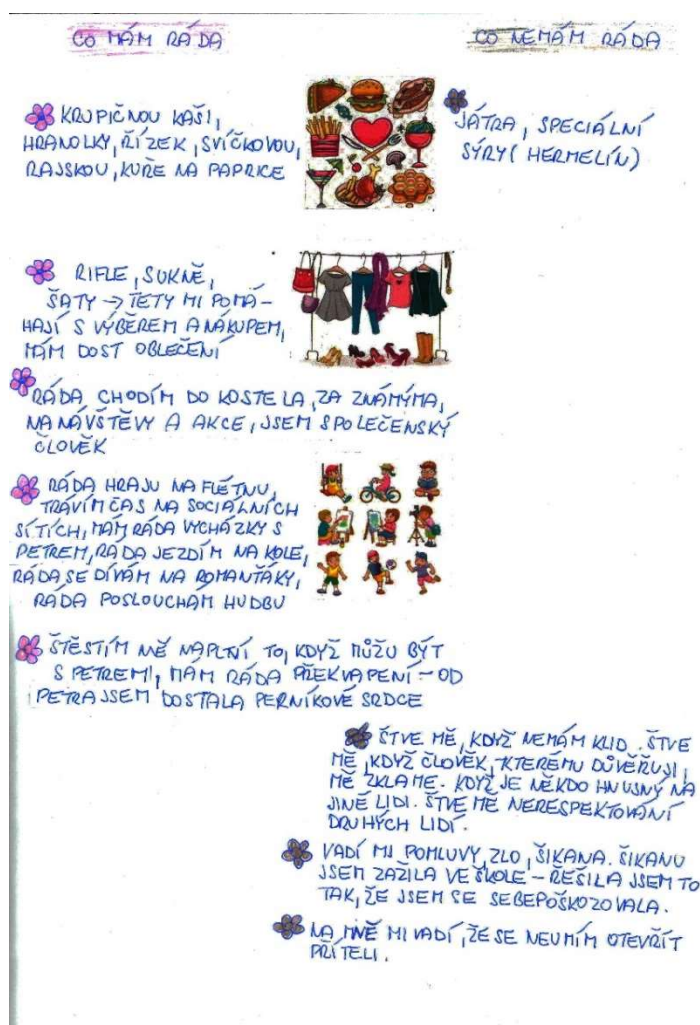 CO MÁM RÁDA
CO NEMÁM RÁDA
KRUPIČNOU KAŠI,
HRANOLKY, ŘÍZEK, SVÍČKOVOU,
RAJSKOU, KUŘE NA PAPRICE
JÁTRA, SPECIÁLNÍ
SÝRY (HERMELÍN)
RIFLE, SUKNĚ,
ŠATY → TETY MI POMÁ-
HAJÍ S VÝBĚREM A NÁKUPEM,
MÁM DOST OBLEČENÍ
RÁDA CHODÍM DO KOSTELA, ZA ZNÁMÝMA,
NA NÁVŠTĚVY A AKCE, JSEM SPOLEČENSKÝ
ČLOVĚK
RÁDA HRAJU NA FLÉTNU,
TRÁVÍM ČAS NA SOCIÁLNÍCH
SÍTÍCH, MÁM RÁDA VYCHÁZKY S
PETREM, RÁDA JEZDÍM NA KOLE,
RÁDA SE DÍVÁM NA ROMANŤÁKY,
RÁDA POSLOUCHÁM HUDBU
ŠTĚSTÍM MĚ NAPLNÍ TO, KDYŽ MŮŽU BÝT
S PETREM, MÁM RÁDA PŘEKVAPENÍ - OD
PETRA JSEM DOSTALA PERNÍKOVÉ SRDCE
ŠTVE MĚ, KDYŽ NEMÁM KLID. ŠTVE
MĚ, KDYŽ ČLOVĚK, KTERÉMU DŮVĚŘUJI,
MĚ ZKLAME. KDYŽ JE NĚKDO HNUSNÝ NA
JINÉ LIDI. ŠTVE MĚ NERESPEKTOVÁNÍ
DRUHÝCH LIDÍ.
VADÍ MI POMLUVY, ZLO, ŠIKANA. ŠIKANU
JSEM ZAŽILA VE ŠKOLE - ŘEŠILA JSEM TO
TAK, ŽE JSEM SE SEBEPOŠKOZOVALA.
NA MNĚ MI VADÍ, ŽE SE NEUMÍM OTEVŘÍT
PŘÍTELI.